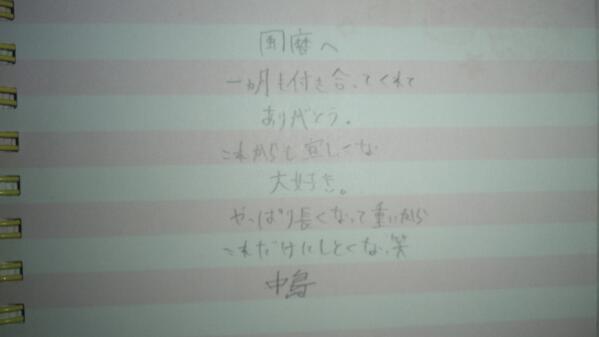 一ヵ月も付き合ってくれて
ありがとう。
これからも宜しくな
大好き。
やっぱり長くなって重いから
これだけにしとくな、笑
中島